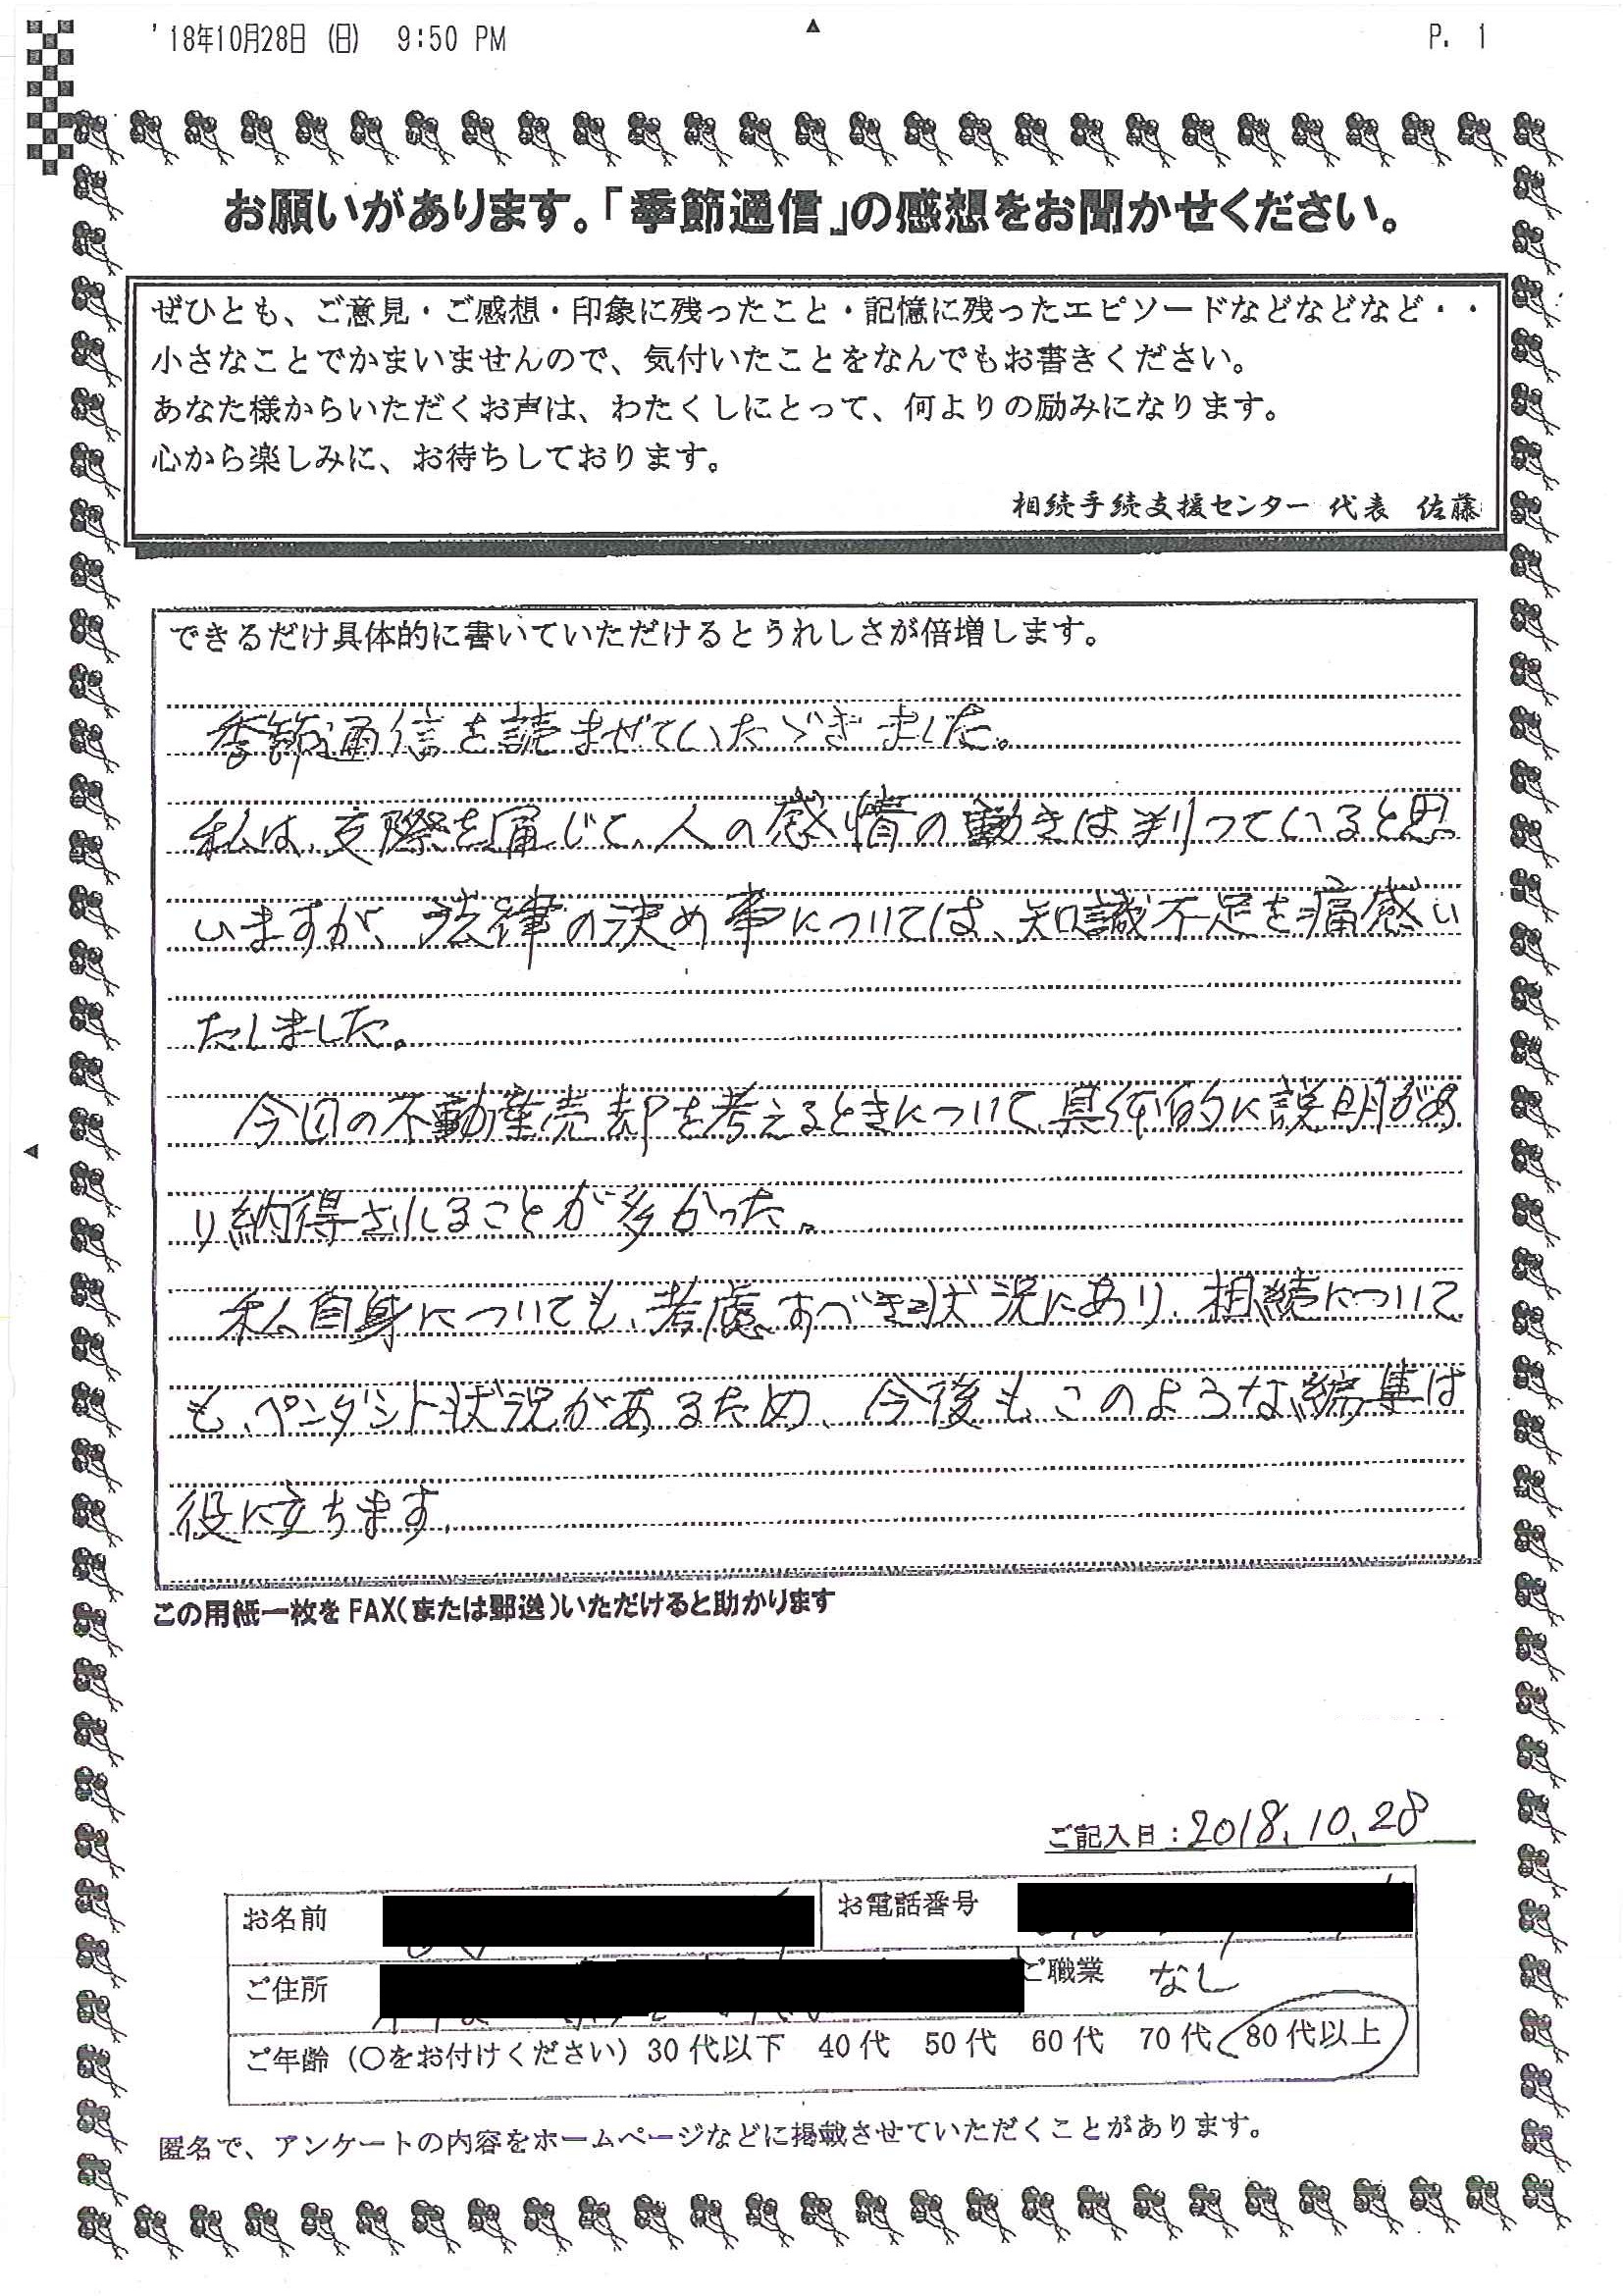 '18年10月28日 (日) 9:50 PM P. 1
お願いがあります。「季節通信」の感想をお聞かせください。
ぜひとも、ご意見・ご感想・印象に残ったこと・記憶に残ったエピソードなどなどなど・・
小さなことでかまいませんので、気付いたことをなんでもお書きください。
あなた様からいただくお声は、わたくしにとって、何よりの励みになります。
心から楽しみに、お待ちしております。
相続手続支援センター 代表 佐藤
できるだけ具体的に書いていただけるとうれしさが倍増します。
季節通信を読ませていたゞきました。
私は、交際を通じて、人の感情の動きは判っていると思
いますが、法律の決め事については、知識不足を痛感い
たしました。
今回の不動産売却を考えるときについて、具体的に説明があ
り納得されることが多かった。
私自身についても、考慮すべき状況にあり、相続について
も、ペンダント状況があるため、今後も、このような編集は
役に立ちます
この用紙一枚をFAX(または郵送)いただけると助かります
ご記入日：2018.10.28
お名前 お電話番号
ご住所 ご職業 なし
ご年齢（〇をお付けください）30代以下 40代 50代 60代 70代 80代以上
匿名で、アンケートの内容をホームページなどに掲載させていただくことがあります。